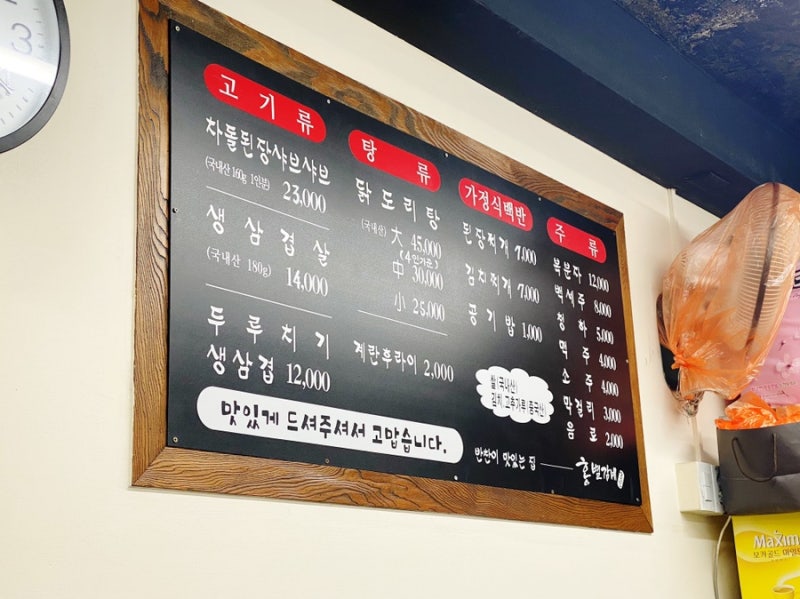 고기류
차돌된장샤브샤브
(국내산 160g 1인분)
23,000
생삼겹살
(국내산 180g) 14,000
두루치기
생삼겹 12,000
탕류
닭도리탕
(국내산) 大 45,000
(4인기준)
中 30,000
小 25,000
계란후라이 2,000
가정식백반
된장찌개 7,000
김치찌개 7,000
공기밥 1,000
쌀(국내산)
김치,고추가루(중국산)
주류
복분자 12,000
백세주 8,000
청하 5,000
맥주 4,000
소주 4,000
막걸리 3,000
음료 2,000
맛있게 드셔주셔서 고맙습니다.
반찬이 맛있는 집
Maxim
모카골드 마일드
2
3